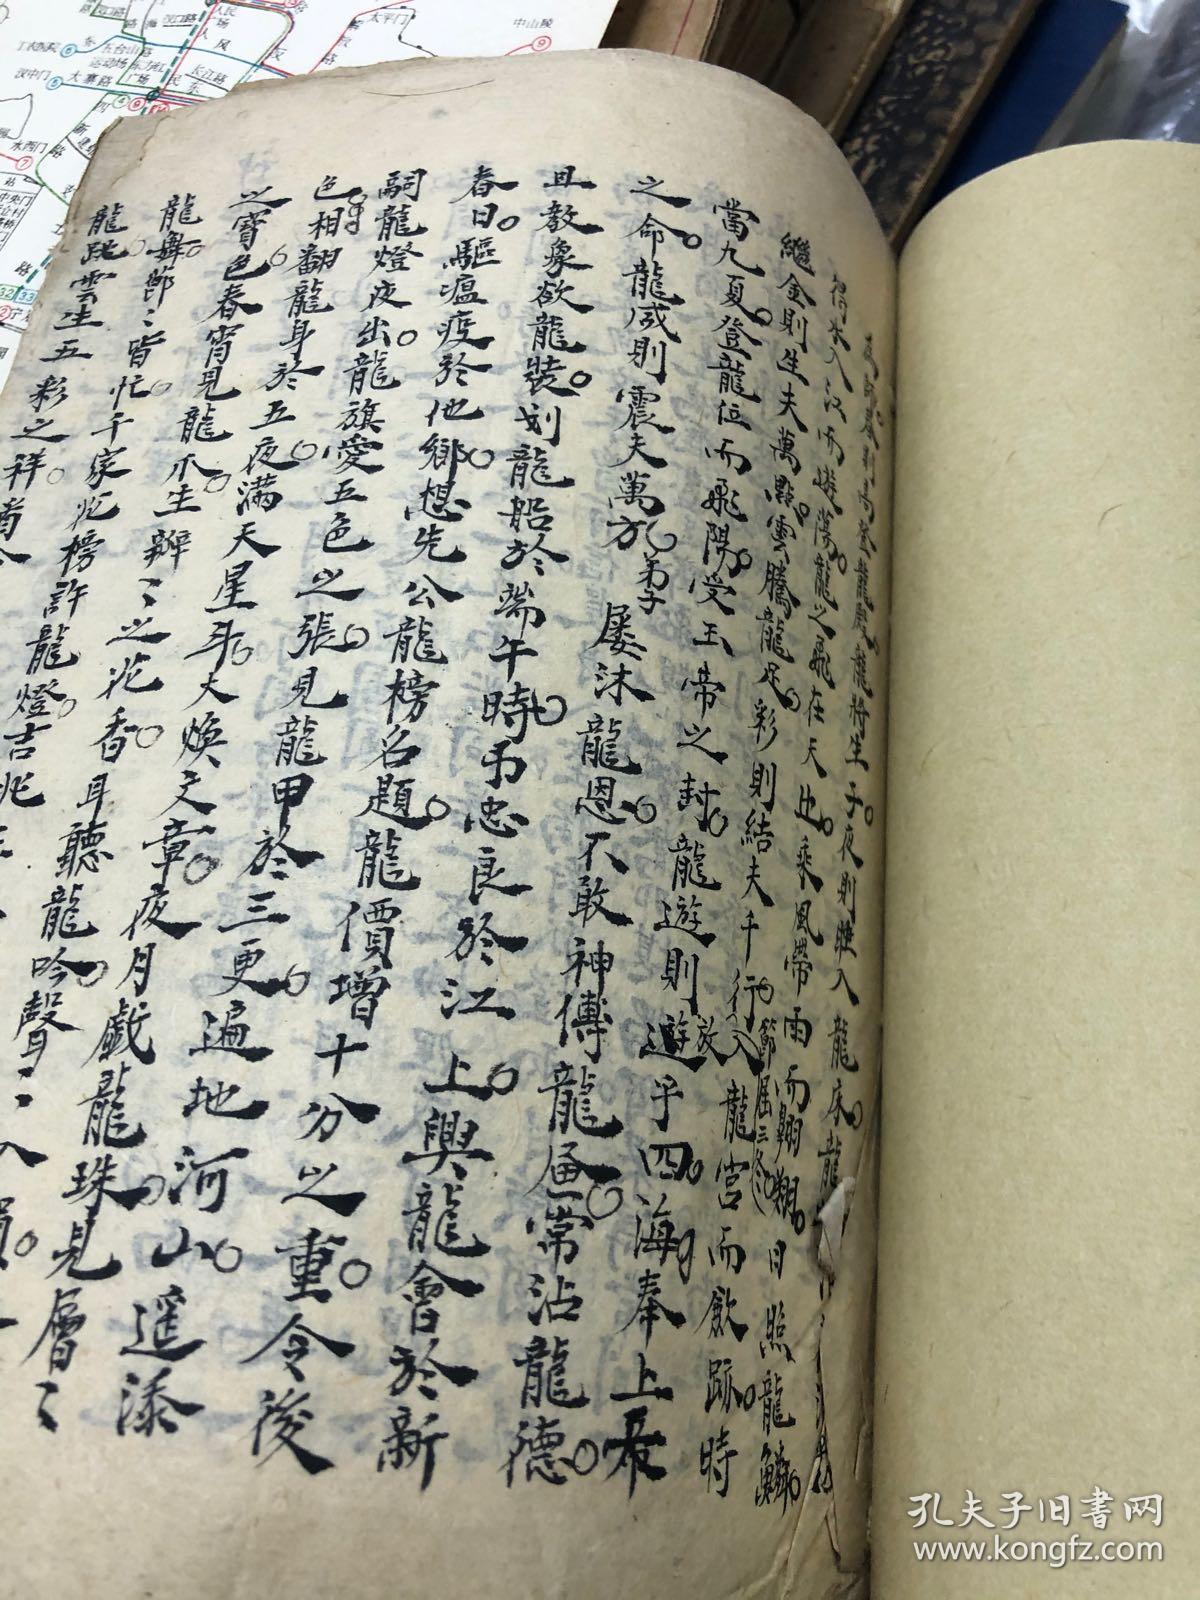 高登龍殿龍將生子夜則睡入龍床龍
得水入江而遊蕩龍之飛在天也乘風帶雨而翱翔日照龍鱗
繼金則生夫萬點雲騰龍足彩則結夫千行節屆三冬放入龍宮而歛跡時
當九夏登龍位而飛陽受玉帝之封龍遊則遊乎四海奉上帝
之命龍威則震夫萬方弟子屢沐龍恩不敢神傳龍應常沾龍德
且教象欲龍裝划龍船於端午時弔忠良於江上與龍會於新
春日驅瘟疫於他鄉想先公龍榜名題龍價增十分之重令後
嗣龍燈夜出龍旗愛五色之張見龍甲於三更遍地河山遥添
色相翻龍身於五夜滿天星斗大煥文章夜月戲龍珠見層〻
之寶色春宵見龍爪生瓣〻之花香耳聽龍吟聲〻入
龍舞節〻皆忙千家花榜許龍燈吉兆
龍跳雲生五彩之祥看今
孔夫子旧书网
www.kongfz.com
工农医院
五台山
汉中门
大寨路
水西门
太平门
中山陵
长江路